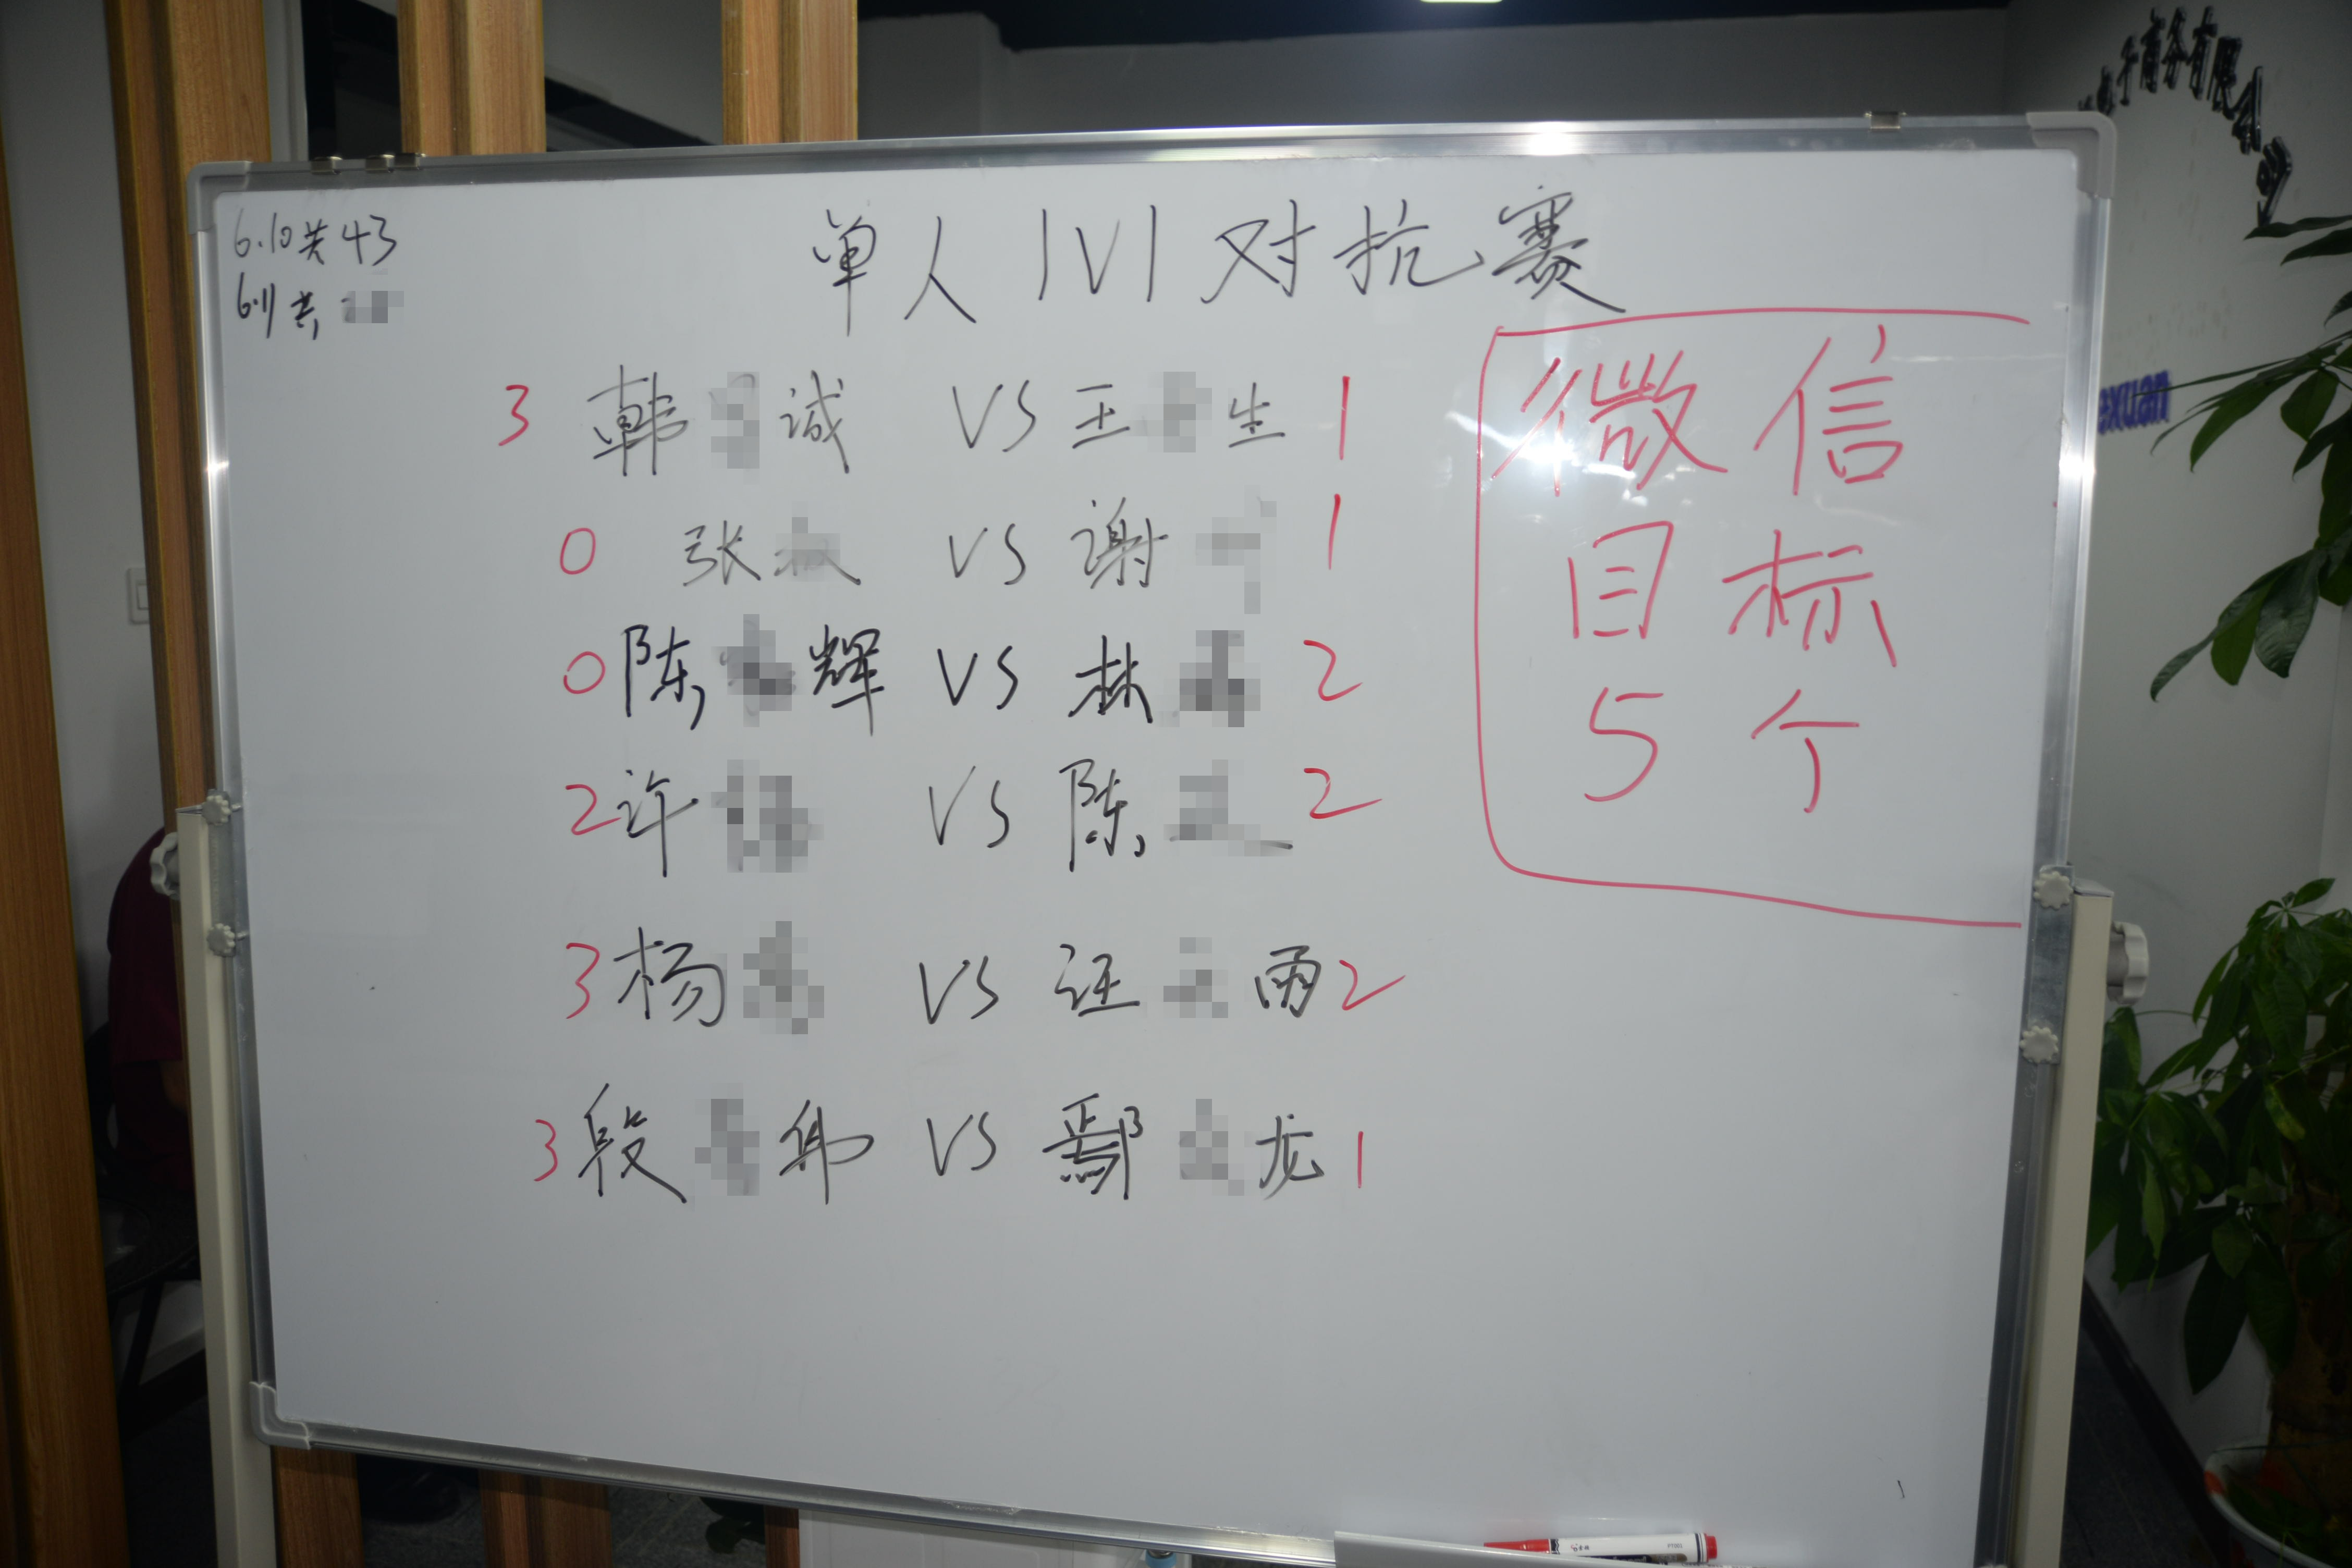 6.10共43
6.11共
单人1V1对抗赛
3 韩 诚 VS 王 生 1
0 张 VS 谢 1
0 陈 辉 VS 林 2
2 许 VS 陈 2
3 杨 VS 汪 雨 2
3 段 弟 VS 鄢 龙 1
微信
目标
5个
子商务有限公司
exuan